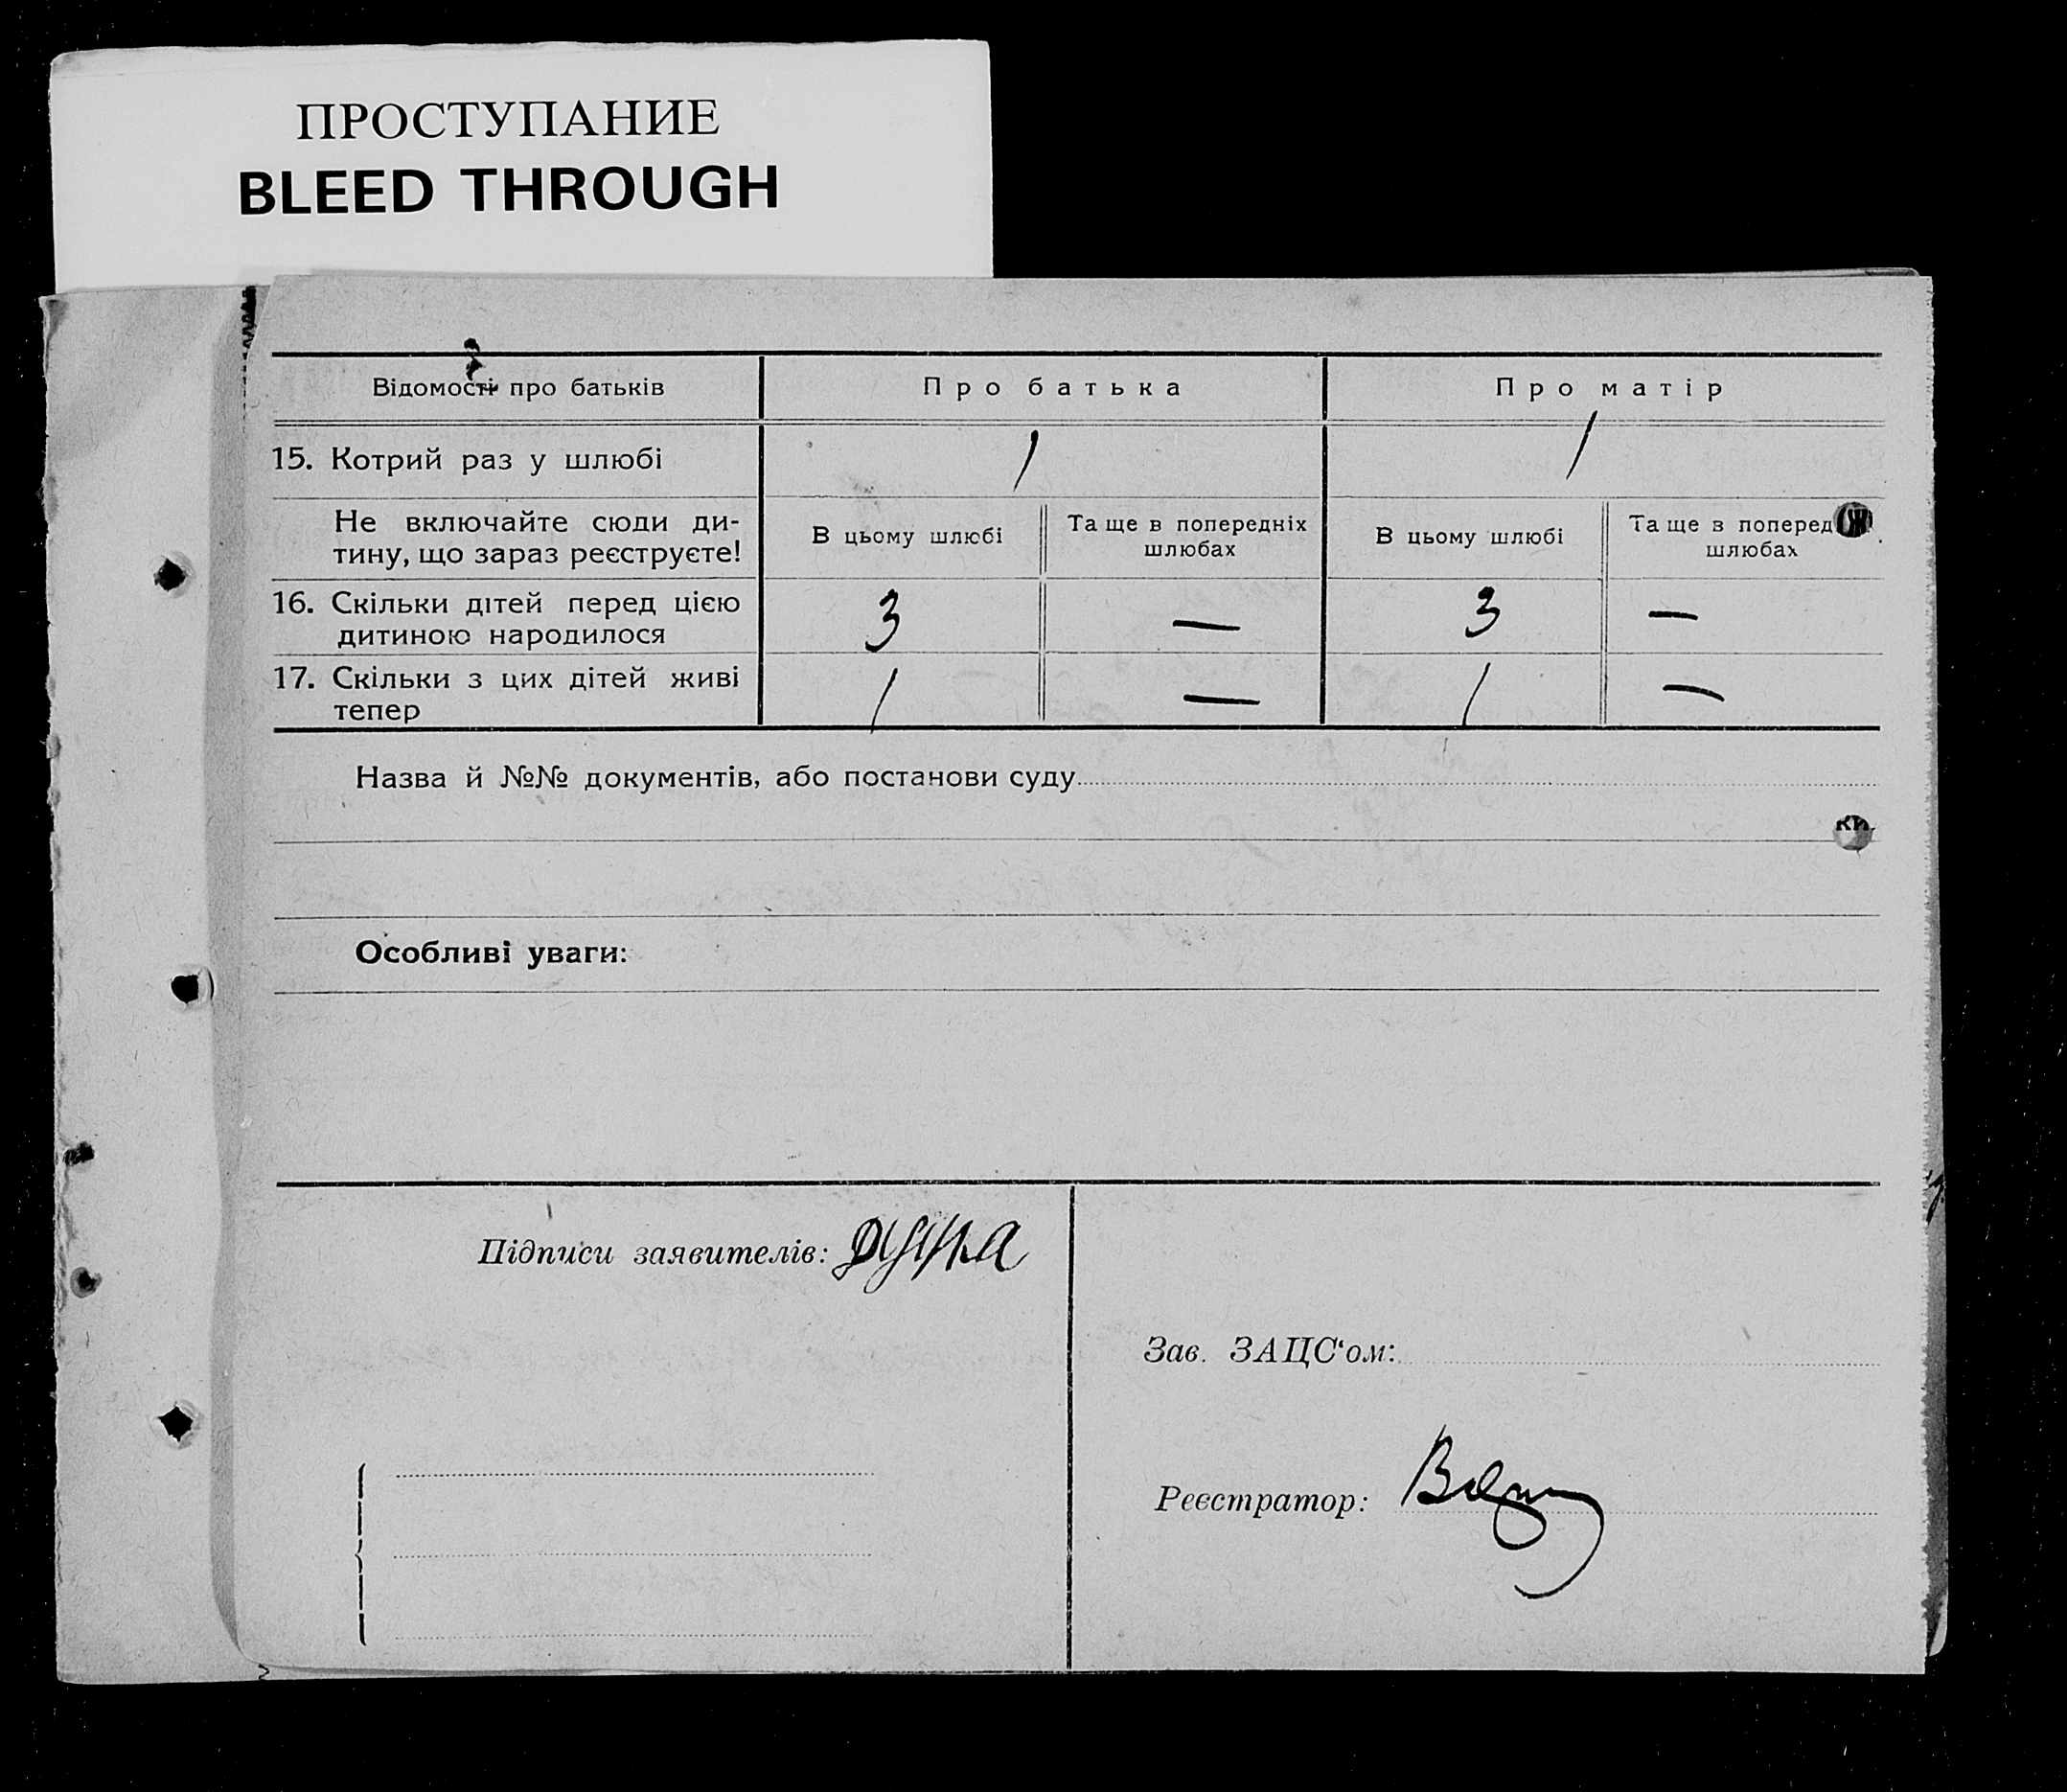 ПРОСТУПАНИЕ
BLEED THROUGH
Відомості про батьків
Про батька
Про матір
15. Котрий раз у шлюбі
1
1
Не включайте сюди ди-
тину, що зараз реєструєте!
В цьому шлюбі
Та ще в попередніх
шлюбах
В цьому шлюбі
Та ще в поперед
шлюбах
16. Скільки дітей перед цією
дитиною народилося
3
—
3
—
17. Скільки з цих дітей живі
тепер
1
—
1
—
Назва й №№ документів, або постанови суду
ки.
Особливі уваги:
Підписи заявителів:
Зав. ЗАЦС‘ом:
Реєстратор: